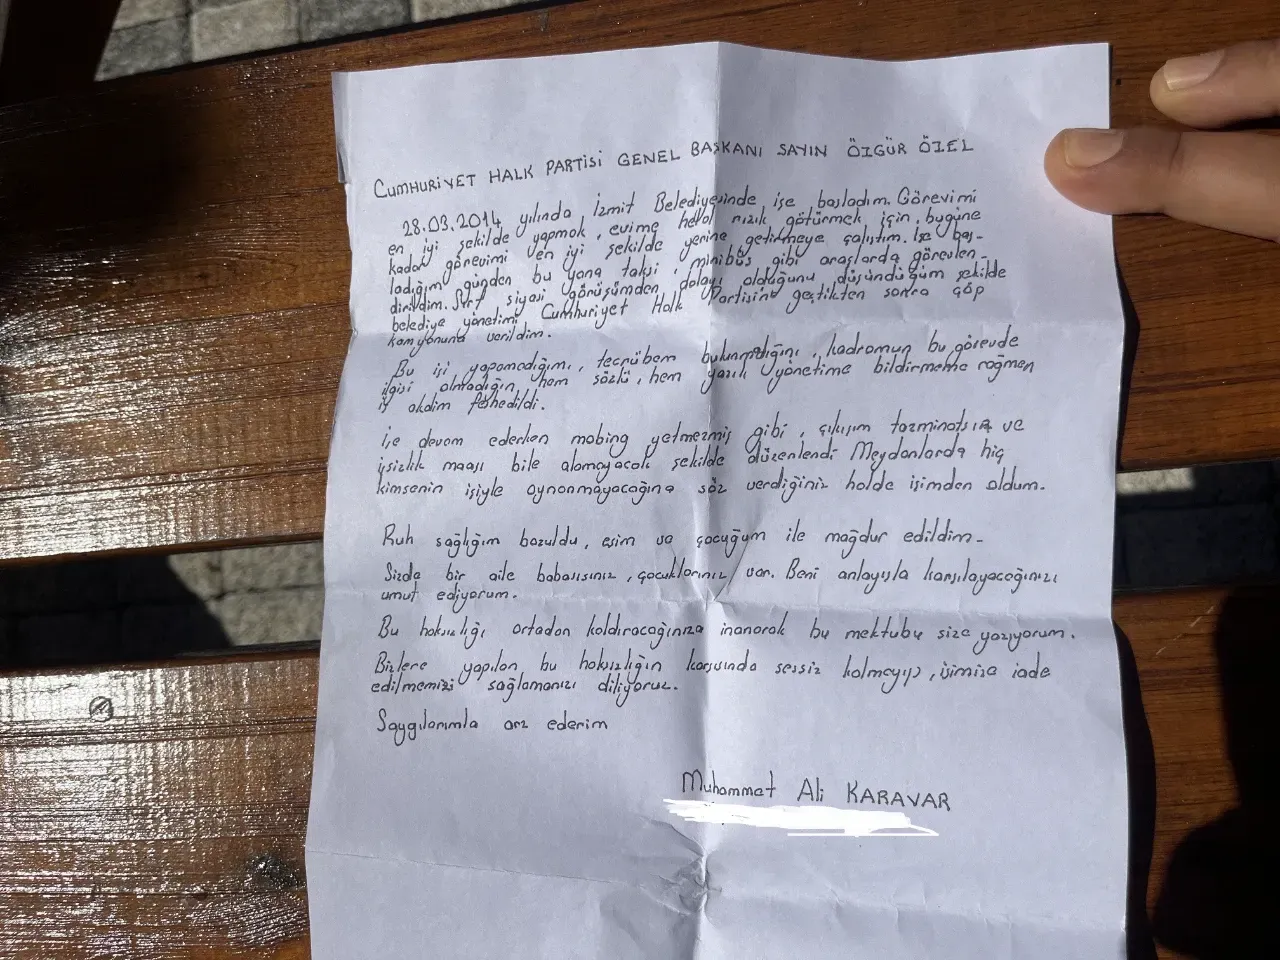 CUMHURİYET HALK PARTİSİ GENEL BAŞKANI SAYIN ÖZGÜR ÖZEL
28.03.2014 yılında, İzmit Belediyesinde işe başladım. Görevimi
en iyi şekilde yapmak, evime helal rızık götürmek için, bugüne
kadar görevimi en iyi şekilde yerine getirmeye çalıştım. İşe baş-
ladığım günden bu yana taksi, minibüs gibi araçlarda görevlen-
dirildim. Sırf siyasi görüşümden dolayı olduğunu düşündüğüm şekilde
belediye yönetimi Cumhuriyet Halk Partisine geçtikten sonra çöp
kamyonuna verildim.
Bu işi yapamadığımı, tecrübem bulunmadığını, kadromun bu görevde
ilgisi olmadığın, hem sözlü, hem yazılı yönetime bildirmeme rağmen
iş akdim feshedildi.
İşe devam ederken mobing yetmezmiş gibi, çıkışım tazminatsız ve
işsizlik maaşı bile alamayacak şekilde düzenlendi Meydanlarda hiç
kimsenin işiyle oynanmayacağına söz verdiğiniz halde işimden oldum.
Ruh sağlığım bozuldu, eşim ve çocuğum ile mağdur edildim-
Sizde bir aile babasısınız, çocuklarınız var. Beni anlayışla karşılayacağınızı
umut ediyorum.
Bu haksızlığı ortadan kaldıracağınıza inanarak bu mektubu size yazıyorum.
Bizlere yapılan bu haksızlığın karşısında sessiz kalmayıp, işimize iade
edilmemizi sağlamanızı diliyoruz.
Saygılarımla arz ederim
Muhammet Ali KARAVAR